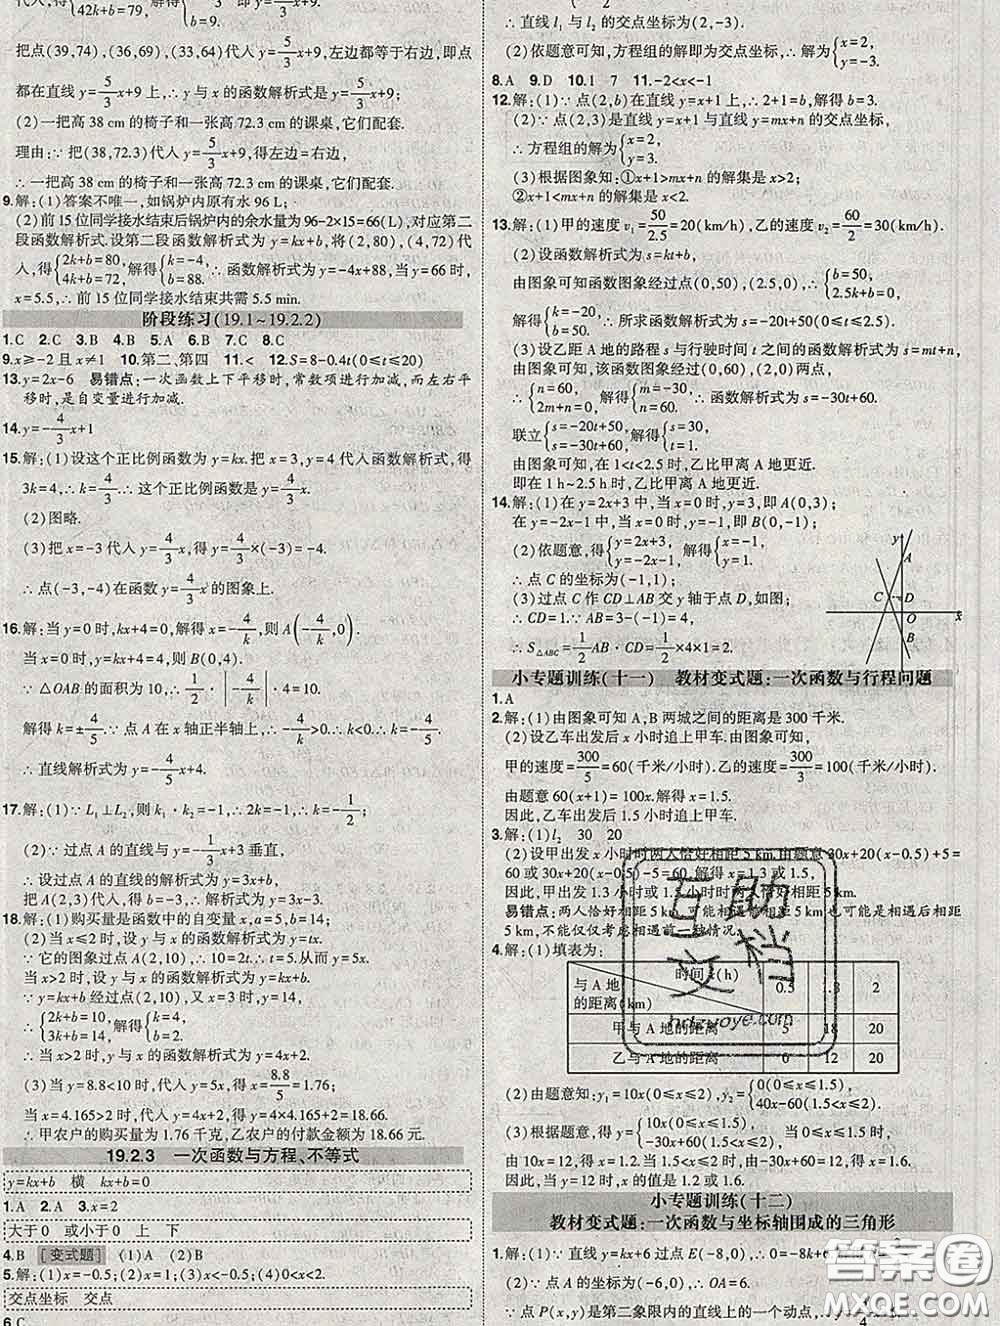 代入,得{42k+b=79, b=9.
把点(39,74),(36,69),(33,64)代人 y=5/3x+9,左边都等于右边,即点
都在直线 y=5/3x+9 上,∴ y 与 x 的函数解析式是 y=5/3x+9;
(2)一把高 38 cm 的椅子和一张高 72.3 cm 的课桌,它们配套.
理由:∵ 把(38,72.3)代人 y=5/3x+9,得左边=右边,
∴ 一把高 38 cm 的椅子和一张高 72.3 cm 的课桌,它们配套.
9.解:(1)答案不唯一,如锅炉内原有水 96 L;
(2)前 15 位同学接水结束后锅炉内的余水量为 96-2×15=66(L),对应第二
段函数解析式.设第二段函数解析式为 y=kx+b,将(2,80),(4,72)代
入,得{2k+b=80, 4k+b=72,解得{k=-4, b=88.∴ 函数解析式为 y=-4x+88,当 y=66 时,
x=5.5,∴ 前 15 位同学接水结束共需 5.5 min.
阶段练习(19.1~19.2.2)
1.C 2.C 3.B 4.B 5.A 6.B 7.C 8.C
9.x≥-2 且 x≠1 10.第二、第四 11.< 12.S=8-0.4t(0≤t≤20)
13.y=2x-6 易错点:一次函数上下平移时,常数项进行加减,而左右平
移时,是自变量进行加减.
14.y=-4/3x+1
15.解:(1)设这个正比例函数为 y=kx.把 x=3,y=4 代入函数解析式,得
3k=4,∴ k=4/3,∴ 这个正比例函数是 y=4/3x.
(2)图略.
(3)把 x=-3 代人 y=4/3x,得 y=4/3×(-3)=-4.
∴ 点(-3,-4)在函数 y=4/3x 的图象上.
16.解:当 y=0 时,kx+4=0,解得 x=-4/k,则 A(-4/k,0).
当 x=0 时,y=kx+4=4,则 B(0,4).
∵ △OAB 的面积为 10,∴ 1/2·|-4/k|·4=10.
解得 k=±4/5.∵ 点 A 在 x 轴正半轴上,∴ k=-4/5.
∴ 直线解析式为 y=-4/5x+4.
17.解:(1)∵ L₁⊥L₂,则 k₁·k₂=-1,∴ 2k=-1,∴ k=-1/2;
(2)∵ 过点 A 的直线与 y=-1/3x+3 垂直,
∴ 设过点 A 的直线的解析式为 y=3x+b,
把 A(2,3)代人,得 b=-3,∴ 解析式为 y=3x-3.
18.解:(1)购买量是函数中的自变量 x,a=5,b=14;
(2)当 x≤2 时,设 y 与 x 的函数解析式为 y=tx.
∵ 它的图象过点(2,10),∴ 10=2t.∴ t=5.从而 y=5x.
当 x>2 时,设 y 与 x 的函数解析式为 y=kx+b.
∵ y=kx+b 经过点(2,10),又 x=3 时,y=14,
∴{2k+b=10, 3k+b=14,解得{k=4, b=2.
∴ 当 x>2 时,y 与 x 的函数解析式为 y=4x+2.
(3)当 y=8.8<10 时,代人 y=5x,得 x=8.8/5=1.76;
当 x=4.165>2 时,代人 y=4x+2,得 y=4×4.165+2=18.66.
∴ 甲农户的购买量为 1.76 千克,乙农户的付款金额为 18.66 元.
19.2.3 一次函数与方程、不等式
y=kx+b 横 kx+b=0
1.A 2.A 3.x=2
大于 0 或小于 0 上 下
4.B [变式题] (1)A (2)B
5.解:(1)x=-0.5;(2)x=1;(3)x>-0.5;(4)x<0.
交点坐标 交点
6.C
∴ 直线 l₁ 与 l₂ 的交点坐标为(2,-3).
(2)依题意可知,方程组的解即为交点坐标,∴ 解为{x=2, y=-3.
8.A 9.D 10.1 7 11.-2<x<-1
12.解:(1)∵ 点(2,b)在直线 y=x+1 上,∴ 2+1=b,解得 b=3.
(2)∵ 点(2,3)是直线 y=x+1 与直线 y=mx+n 的交点坐标,
∴ 方程组的解为{x=2, y=3.
(3)根据图象知:①x+1>mx+n 的解集是 x>2;
②x+1<mx+n 的解集是 x<2.
13.解:(1)甲的速度 v₁=50/2.5=20(km/h),乙的速度 v₂=60/2=30(km/h).
(2)设函数解析式为 s=kt+b,
由图象可知函数图象经过点(0,50),(2.5,0),∴{b=50, 2.5k+b=0,
解得{k=-20, b=50.∴ 所求函数解析式为 s=-20t+50.
(3)设乙距 A 地的路程 s 与行驶时间 t 之间的函数解析式为 s=mt+n,
由图象可知,该函数图象经过点(0,60),(2,0)两点,
∴{n=60, 2m+n=0,解得{m=-30, n=60.∴ s=-30t+60.
联立{s=-20t+50, s=-30t+60,解得{s=30, t=1.
由图象可知,在 1<t<2.5 时,乙比甲离 A 地更近.
即在 1 h~2.5 h 时,乙比甲离 A 地更近.
14.解:(1)在 y=2x+3 中,当 x=0 时,y=3,即 A(0,3);
在 y=-2x-1 中,当 x=0 时,y=-1,即 B(0,-1);
(2)依题意,得{y=2x+3, y=-2x-1,解得{x=-1, y=1.
∴ 点 C 的坐标为(-1,1);
(3)过点 C 作 CD⊥AB 交 y 轴于点 D,如图;
∴ CD=1.∵ AB=3-(-1)=4,
∴ S△ABC=1/2AB·CD=1/2×4×1=2.
y
A
C D
O x
B
小专题训练(十一) 教材变式题:一次函数与行程问题
1.A
2.解:(1)由图象可知 A,B 两城之间的距离是 300 千米.
(2)设乙车出发 x 小时追上甲车.由图象可知,
甲的速度=300/5=60(千米/小时).乙的速度=300/3=100(千米/小时).
由题意 60(x+1)=100x.解得 x=1.5.
因此,乙车出发后 1.5 小时追上甲车.
3.解:(1)l₂ 30 20
(2)设甲出发 x 小时两人恰好相距 5 km.由题意 30x+20(x-0.5)+5=
60 或 30x+20(x-0.5)-5=60,解得 x=1.3 或 1.5.
因此,甲出发 1.3 小时或 1.5 小时时两人恰好相距 5 km.
易错点:两人恰好相距 5 km,可能相遇前相距 5 km 也可能是相遇后相距
5 km,不能仅仅考虑相遇前一种情况.
4.解:(1)填表为:
时间 x(h) 与 A 地的距离(km) 0.5 1.8 2
甲与 A 地的距离 5 18 20
乙与 A 地的距离 0 12 20
(2)由题意知:y₁=10x(0≤x≤1.5),y₂={0(0≤x≤1.5), 40x-60(1.5<x≤2).
(3)根据题意,得 y={10x(0≤x≤1.5), -30x+60(1.5<x≤2).当 0≤x≤1.5 时,由
10x=12,得 x=1.2.当 1.5<x≤2 时,由-30x+60=12,得 x=1.6.
因此,当 y=12 时,x 的值是 1.2 或 1.6.
小专题训练(十二)
教材变式题:一次函数与坐标轴围成的三角形
1.解:(1)∵ 直线 y=kx+6 过点 E(-8,0),∴ 0=-8k+6
(2)∵ 点 A 的坐标为(-6,0),∴ OA=6.
∵ 点 P(x,y)是第二象限内的直线上的一个动点,
互助文档
hdzuoye.com
答案圈
MXQE.COM